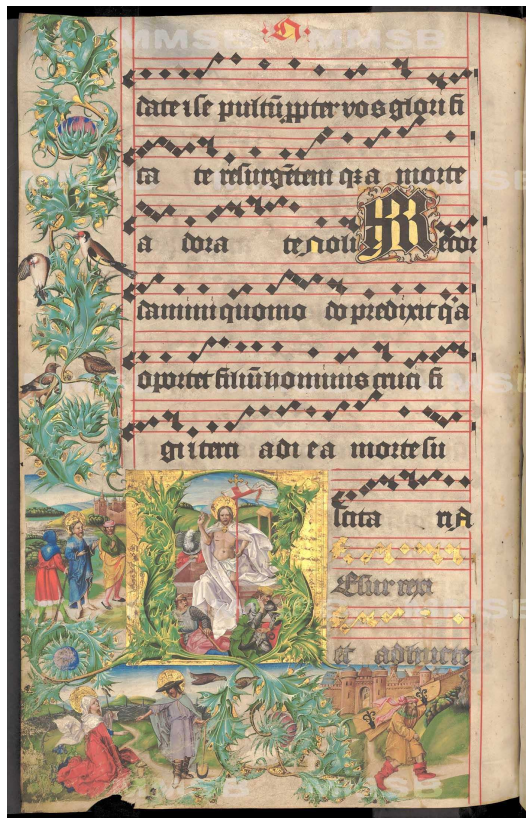 MMSB MMSB
date ise pultū ꝓpter vos glori fi
ca te resurgētem qꝛ a morte
a dora te noli M ecor
damini quomo do predixit qꝛ a
oportet filiū hominis cruci fi
gi iterci a di e a morte su
scita ri A
Esurrexi
et adhuc te